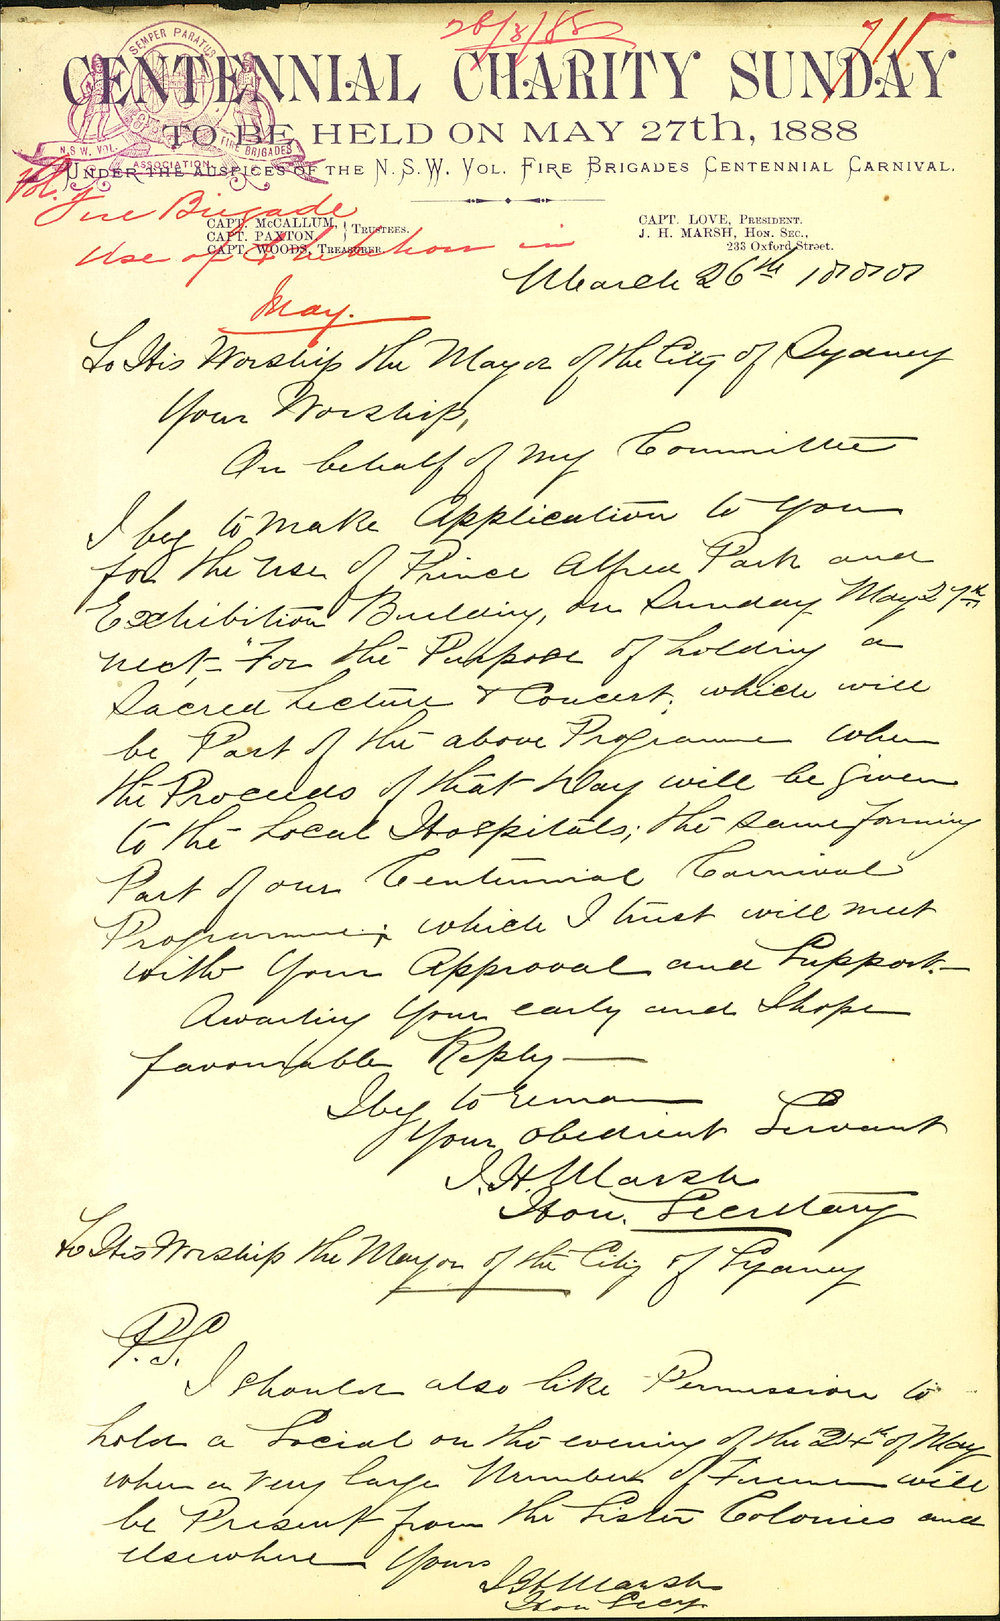 26/3/88
715
SEMPER PARATUS
N.S.W. VOL. FIRE BRIGADES
ASSOCIATION
CENTENNIAL CHARITY SUNDAY
TO BE HELD ON MAY 27th, 1888
UNDER THE AUSPICES OF THE N.S.W. VOL. FIRE BRIGADES CENTENNIAL CARNIVAL.
Vol.
Fire Brigade
Use of Exhibition in
May.
CAPT. McCALLUM,
CAPT. PAXTON,
TRUSTEES.
CAPT. WOODS, TREASURER.
CAPT. LOVE, PRESIDENT.
J. H. MARSH, HON. SEC.,
233 Oxford Street.
March 26th 1888
To His Worship the Mayor of the City of Sydney
Your Worship,
On behalf of my Committee
I beg to make Application to you
for the use of Prince Alfred Park and
Exhibition Building, on Sunday May 27th
next, "For the Purpose of holding a
Sacred Lecture & Concert; which will
be Part of the above Programme when
the Proceeds of that Day will be given
to the Local Hospitals; the same forming
Part of our Centennial Carnival
Programme; which I trust will meet
with Your Approval and Support.—
Awaiting Your early and I hope
favourable Reply—
I beg to remain
Your obedient Servant
J. H. Marsh
Hon. Secretary
To His Worship the Mayor of the City of Sydney
P.S.
I should also like Permission to
hold a Social on the evening of the 24th of May
when a very large Number of Firemen will
be Present from the Sister Colonies and
elsewhere Yours
J H Marsh
Hon Secy